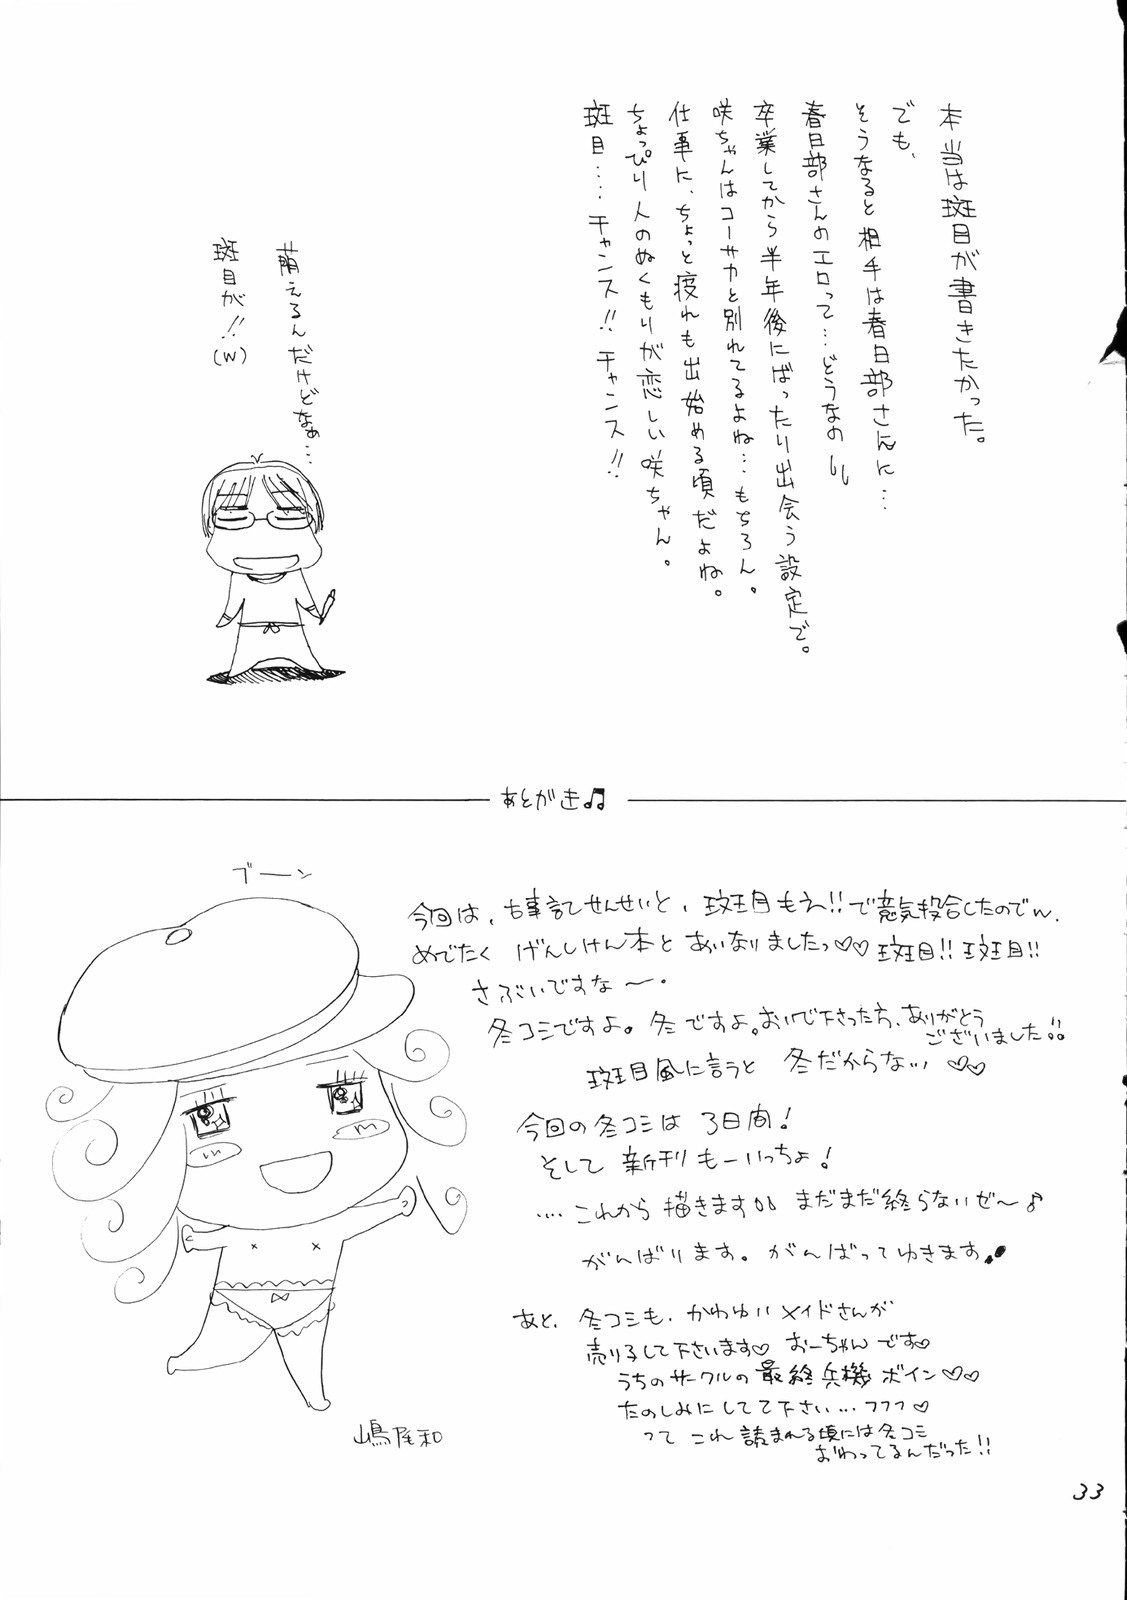 本当は斑目が書きたかった。
でも、
そうなると相手は春日部さんに…
春日部さんのエロって…どうなの
卒業してから半年後にばったり出会う設定で。
咲ちゃんはコーサカと別れてるよね…もちろん。
仕事に、ちょっと疲れも出始める頃だよね。
ちょっぴり人のぬくもりが恋しい咲ちゃん。
斑目‥‥チャンス!!チャンス!!
萌えるんだけどなぁ…
斑目が!!(W)
あとがき♫
ブーン
今回は、古事記せんせいと、斑目もえ!!で意気投合したのでw、
めでたく げんしけん本と あいなりましたっ♡♡ 斑目!! 斑目!!
さぶいですな〜・
冬コミですよ。冬ですよ。おいで下さった方、ありがとう
ございました!!
斑目風に言うと 冬だからな… ♡♡
今回の冬コミは 3日間!
そして 新刊 もーいっちょ!
‥‥これから 描きます まだまだ終らないぜ〜♪
がんばります。がんばってゆきます
あと、冬コミも、かわゆいメイドさんが
売り子して下さいます♡ おーちゃんです♡
うちのサークルの最終兵機 ボイン♡♡
たのしみにしてて下さい…フフフ♡
って これ 読まれる頃には冬コミ
おわってるんだった!!
嶋尾和
33